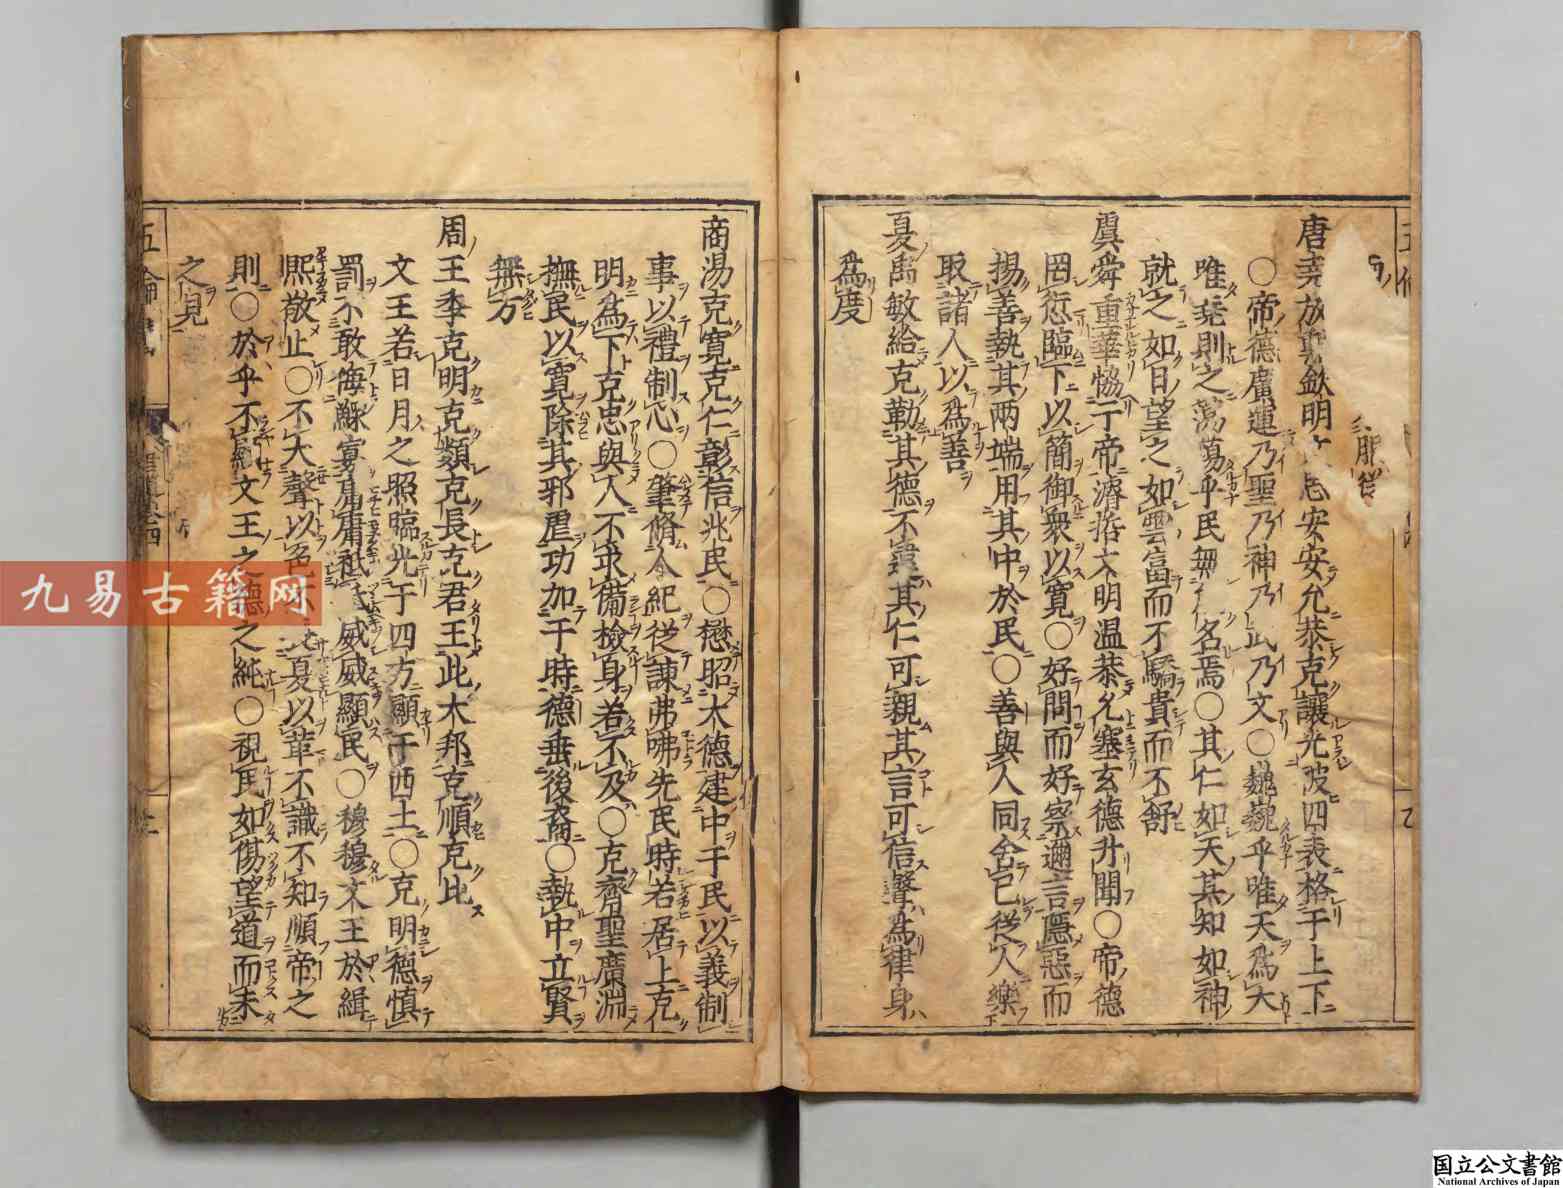 唐堯放勲欽明思安安允恭克讓光被四表格于上下
〇帝德廣運乃聖乃神乃武乃文〇巍巍乎唯天爲大
唯堯則之蕩蕩乎民無名焉〇其仁如天其知如神
就之如日望之如雲富而不驕貴而不舒
虞舜重華恊于帝濬哲文明温恭允塞玄德升聞〇帝德
罔愆臨下以簡御衆以寛〇好問而好察邇言隱惡而
揚善執其兩端用其中於民〇善與人同舍已從人樂
取諸人以爲善
夏禹敏給克勤其德不違其仁可親其言可信聲爲律身
爲度
商湯克寛克仁彰信兆民〇懋昭大德建中于民以義制
事以禮制心〇肇脩人紀從諫弗咈先民時若居上克
明爲下克忠與人不求備檢身若不及〇克齊聖廣淵
撫民以寛除其邪虐功加于時德垂後裔〇執中立賢
無方
周王季克明克類克長克君王此大邦克順克比
文王若日月之照臨光于四方顯于西土〇克明德慎
罰不敢侮鰥寡庸庸祗威威顯民〇穆穆文王於緝
熙敬止〇不大聲以色不夏以革不識不知順帝之
則〇於乎不顯文王之德之純〇視民如傷望道而未
之見
五倫
九易古籍网
国立公文書館
National Archives of Japan